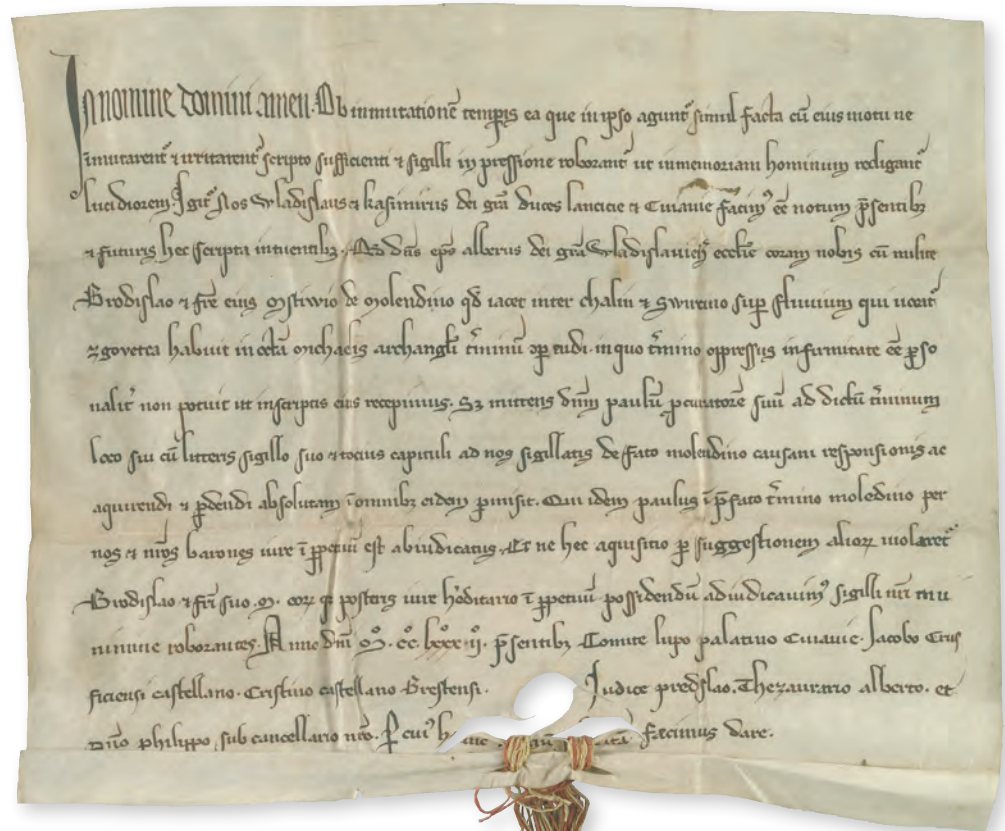 In nomine domini amen. Ob inmutationē temꝑis ea que in ipso agunt᷑ simul facta cū eius motu ne
īmutarent᷑ ⁊ irritarent᷑ scripto sufficienti ⁊ sigilli in pressione roborant᷑ ut in memoriam hominum redigant᷑
lucidiorem. Igit᷑ Nos Wladislaus ⁊ kasimirus dei grā duces lancicie ⁊ Cuiauie facimꝰ eē notum p̄sentibꝫ
⁊ futuris hec scripta intuentibꝫ. dn̄s ep̄s alberus dei grā Wladislauien̄ ecclīe coram nobis cū milite
Brodislao ⁊ fr̄e eius Mstiwio de molendino qd̄ iacet inter chalin ⁊ Swirino suꝑ fluuium qui uocat᷑
zgovetca habuit in octā Michaelis archangl̄i t̄minū in quo t̄mino oppressus infirmitate eē ꝑso
nalit̄ non potuit ut in scriptis eius recepimus. Sꝫ mittens dn̄m paulū ꝓcuratorē suū ad dictū t̄minum
loco sui cū litteris sigillo suo ⁊ tocius capituli ad nos sigillatis de fato molendino causam responsionis ac
aquirendi ⁊ ꝑdendi absolutam ī omnibꝫ eidem ꝑmisit. Qui idem paulus ī p̄fato t̄mino moledino per
nos ⁊ nr̄os barones iure ī ꝑpetuū est abiudicatus. Et ne hec aquisitio ꝑ suggestionem alioꝝ uiolaret᷑
Brodislao ⁊ fr̄i suo .M. eoꝝ posteris iure h̄ditario ī ꝑpetuū possidendū adiudicauimꝰ sigilli nr̄i mu
nimine roborantes. Anno dn̄i .Mº. ccº. lxxxº. iiº. p̄sentibꝫ Comite lupo palatino Cuiauie. Jacobo Crus
ficiensi castellano. Cristino castellano Brestensi. Iudice predslao. Thezaurario alberto. et
dn̄o philippo sub cancellario nr̄o. P cuiꝰ fecimus dare.